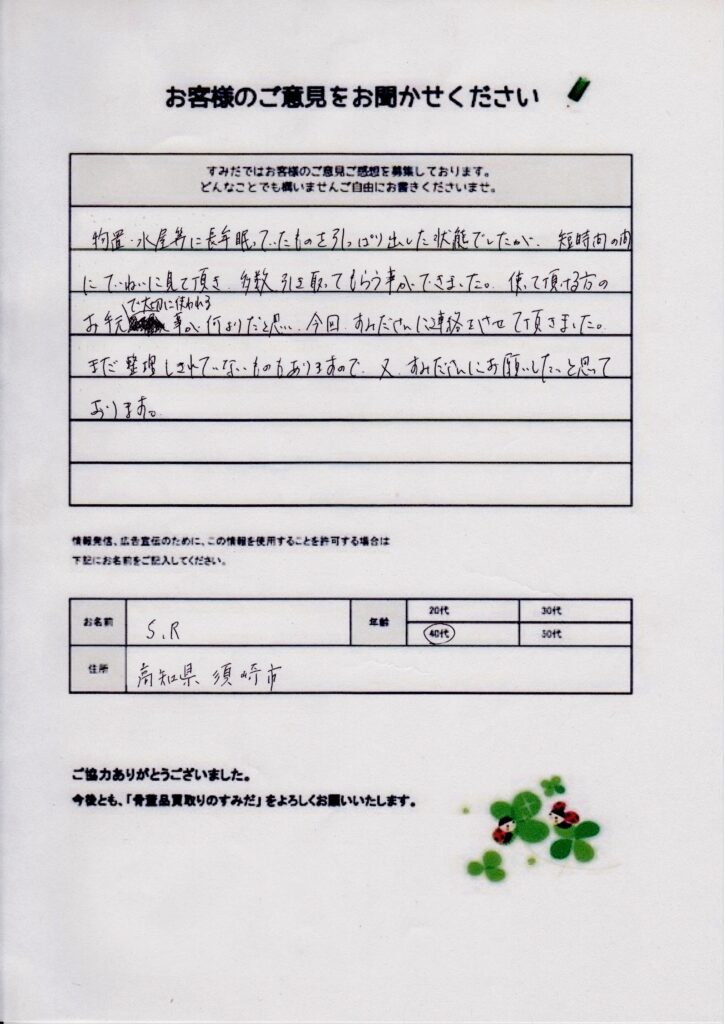 お客様のご意見をお聞かせください
すみだではお客様のご意見ご感想を募集しております。
どんなことでも構いませんご自由にお書きくださいませ。
物置・水屋等に長年眠っていたものを引っぱり出した状態でしたが、短時間の間
にていねいに見て頂き、多数引き取ってもらう事ができました。使って頂ける方の
お手元で大切に使われる事が何よりだと思い、今回、すみださんに連絡をさせて頂きました。
まだ整理しきれていないものもありますので、又、すみださんにお願いしたいと思って
おります。
情報発信、広告宣伝のために、この情報を使用することを許可する場合は
下記にお名前をご記入してください。
お名前 S.R 年齢 20代 30代
40代 50代
住所 高知県須崎市
ご協力ありがとうございました。
今後とも、「骨董品買取りのすみだ」をよろしくお願いいたします。